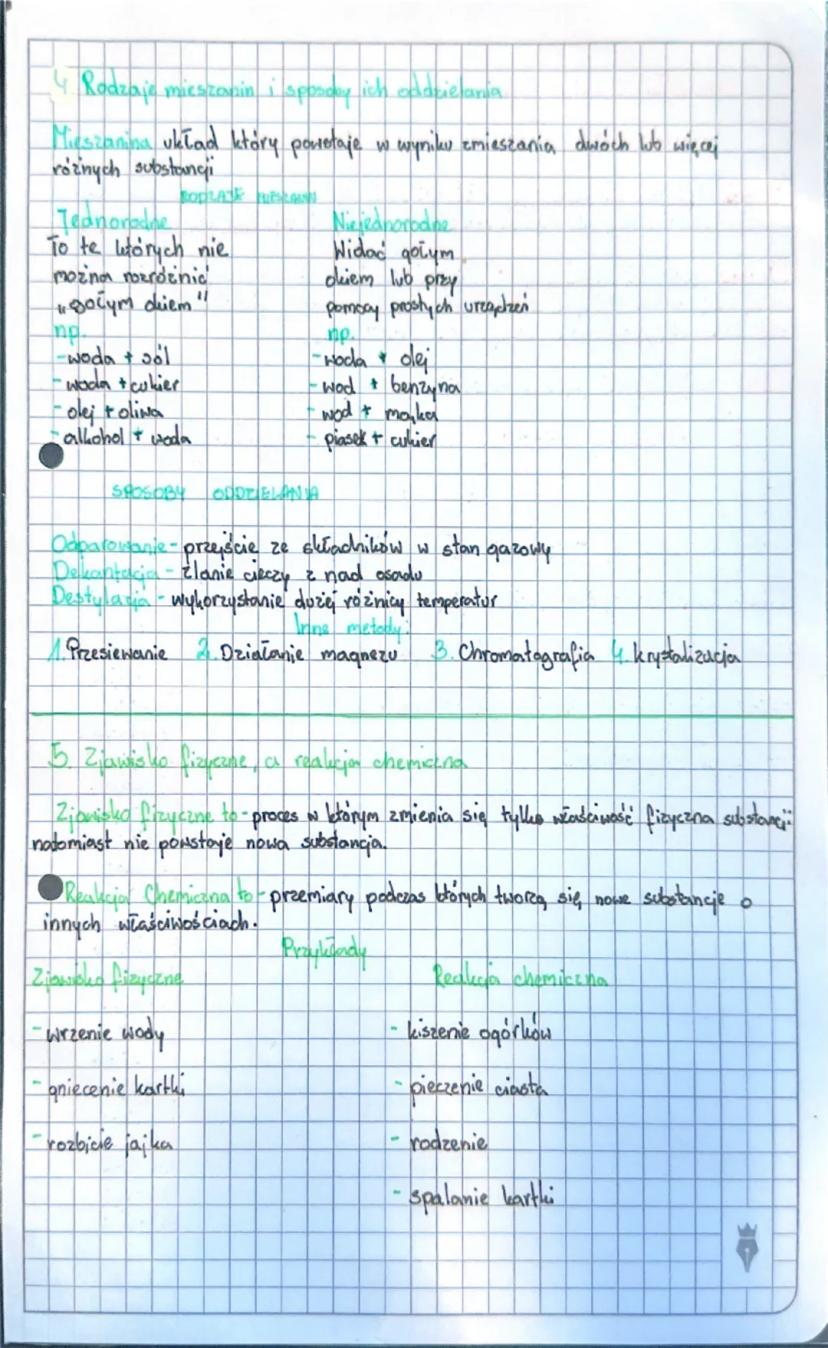 4 Rodzaje mieszanin i sposoby ich oddzielania
Mieszanina układ który powstaje w wyniku zmieszania dwóch lub więcej
różnych substancji
RODZAJE MIESZANIN
Jednorodne
To te których nie
można rozróżnić
„gołym okiem"
np.
-woda + sól
-woda + cukier
-olej + oliwa
-alkohol + woda
Niejednorodne
Widać gołym
okiem lub przy
pomocy prostych urządzeń
np.
-woda + olej
-wod + benzyna
-wod + mąka
- piasek + cukier
SPOSOBY ODDZIELANIA
Odparowanie - przejście ze składników w stan gazowy
Dekantacja - zlanie cieczy z nad osadu
Destylacja - wykorzystanie dużej różnicy temperatur
Inne metody:
1. Przesiewanie 2. Działanie magnezu 3. Chromatografia 4. krystalizacja
5. Zjawisko fizyczne, a reakcja chemiczna
Zjawisko fizyczne to - proces w którym zmienia się tylko właściwość fizyczna substancji
natomiast nie powstaje nowa substancja.
Reakcja Chemiczna to - przemiary podczas których tworzą się nowe substancje o
innych właściwościach.
Przykłady
Zjawisko fizyczne
- wrzenie wody
- gniecenie kartki
- rozbicie jajka
Reakcja chemiczna
- kiszenie ogórków
- pieczenie ciasta
- rodzenie
- spalanie kartki